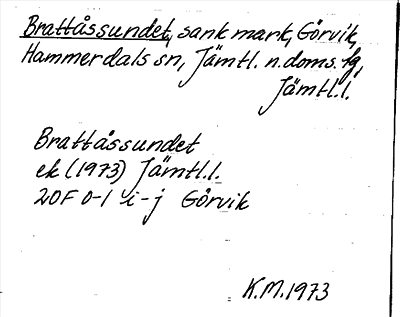 Brattåssundet, sank mark, Görvik,
Hammerdals sn, Jämtl. n. doms. tg,
Jämtl.l.
Brattåssundet
ek (1973) Jämtl.l.
20F 0-1 i-j Görvik
K.M. 1973